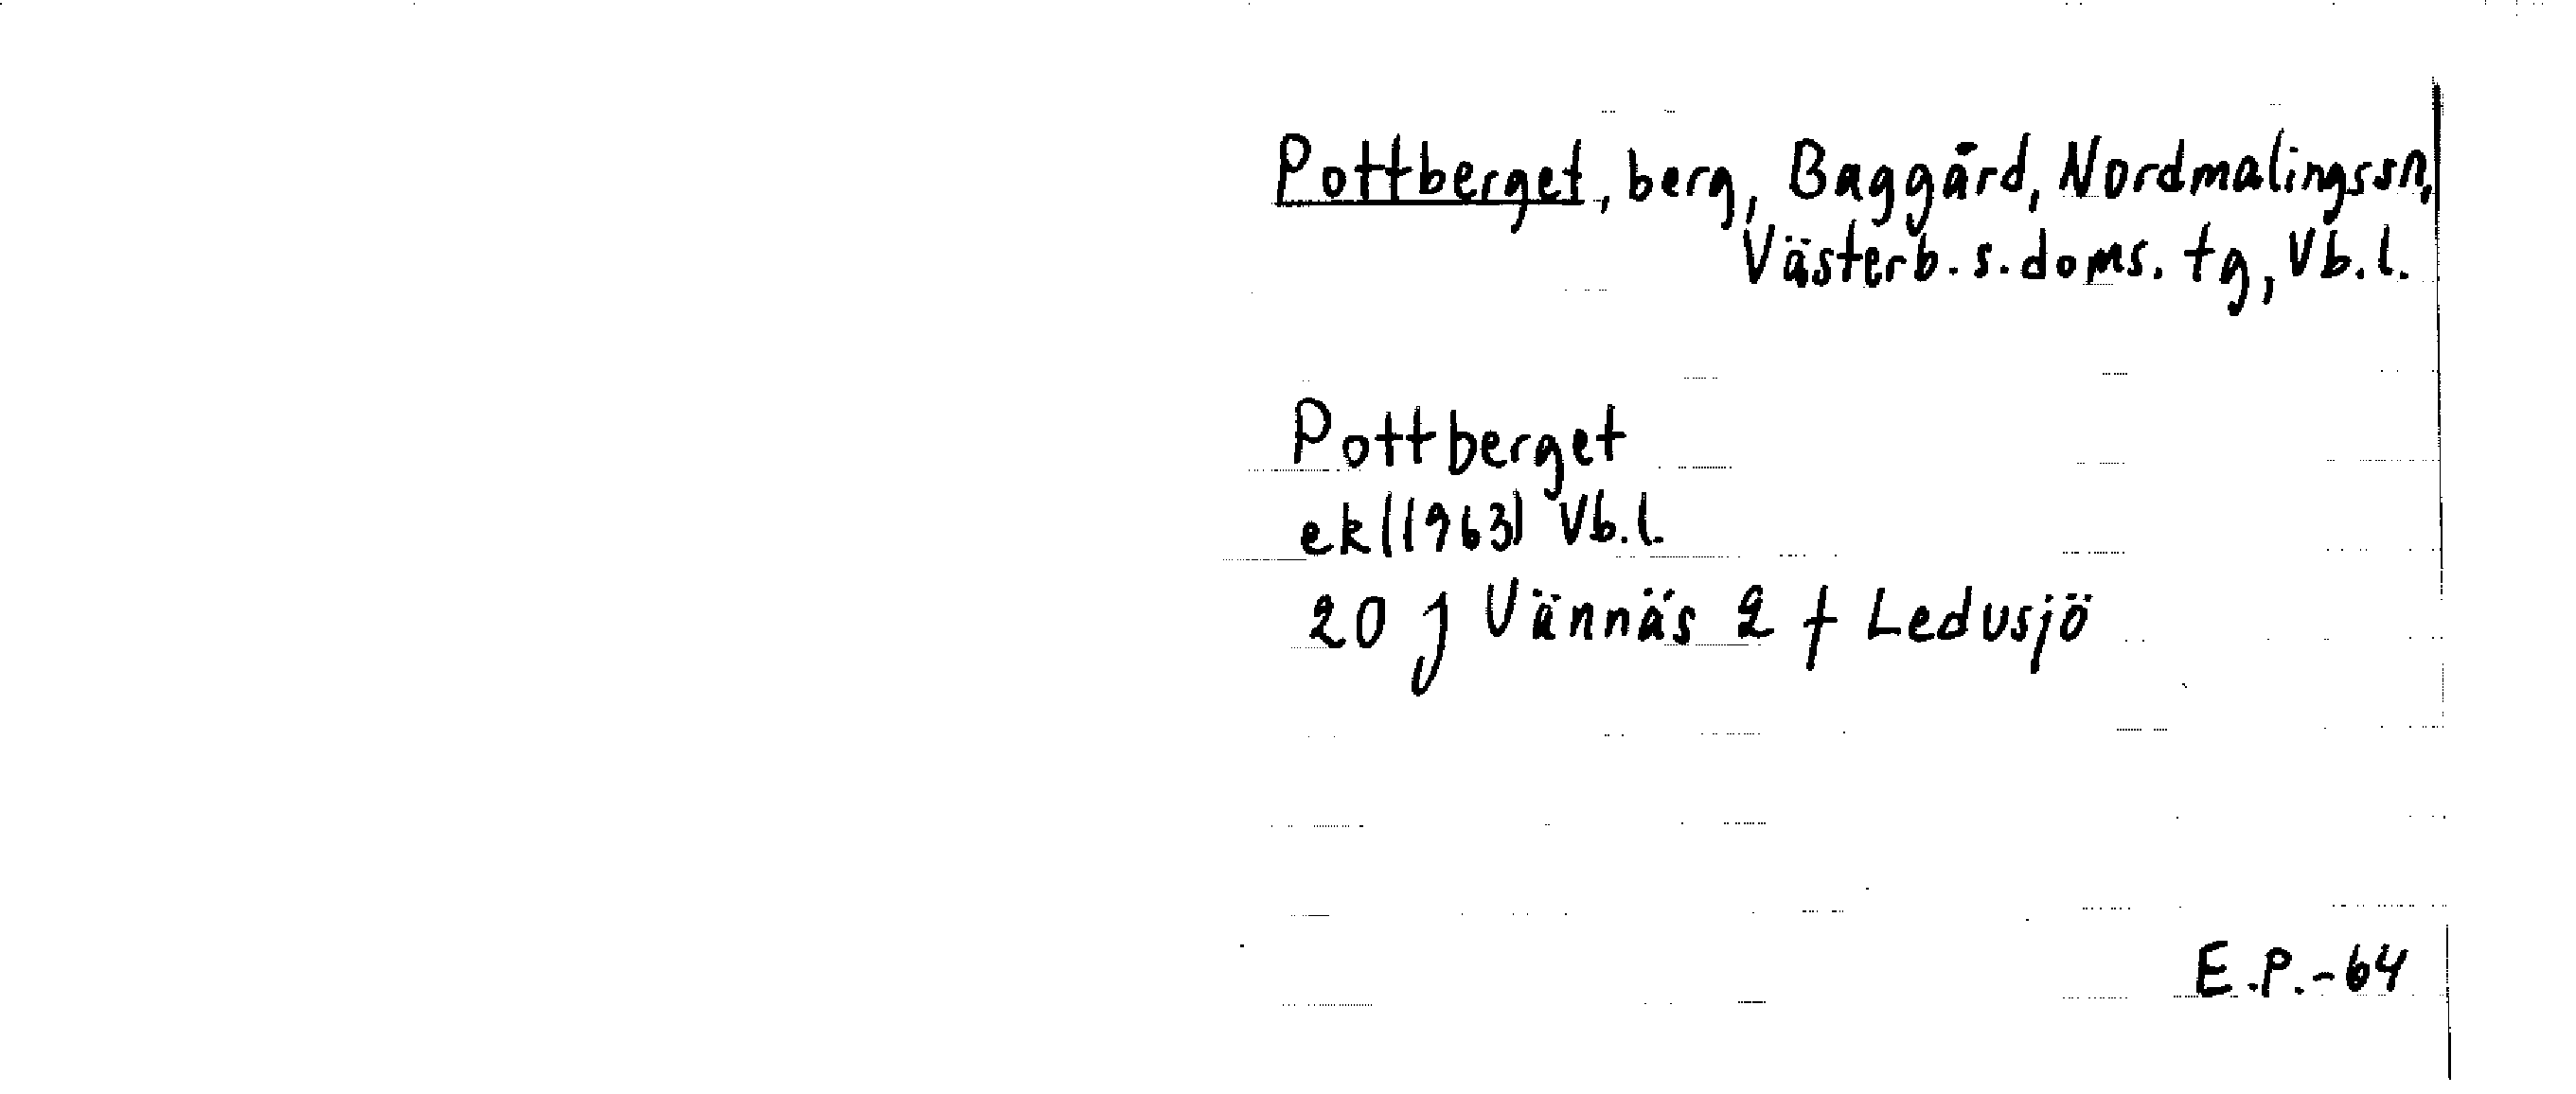 Pottberget, berg, Baggård, Nordmalingssn,
Västerb. s. doms. tg, Vb. l.
Pottberget
ek (1963) Vb. l.
20 J Vännäs 2 f Ledusjö
E.P.-64